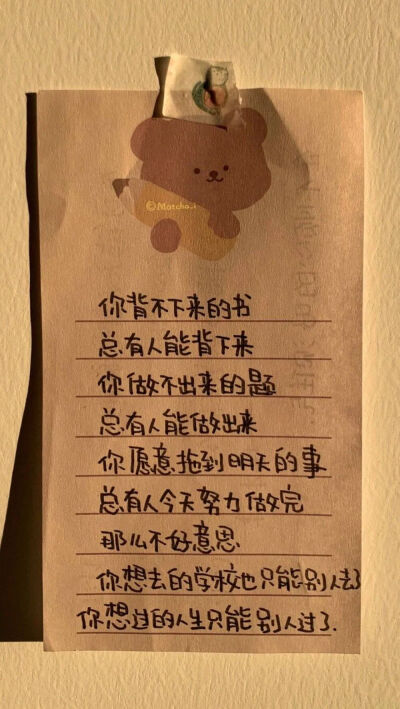 ©Matcha.i
你背不下来的书
总有人能背下来
你做不出来的题
总有人能做出来
你愿意拖到明天的事
总有人今天努力做完
那么不好意思
你想去的学校也只能别人去了
你想过的人生只能别人过了.